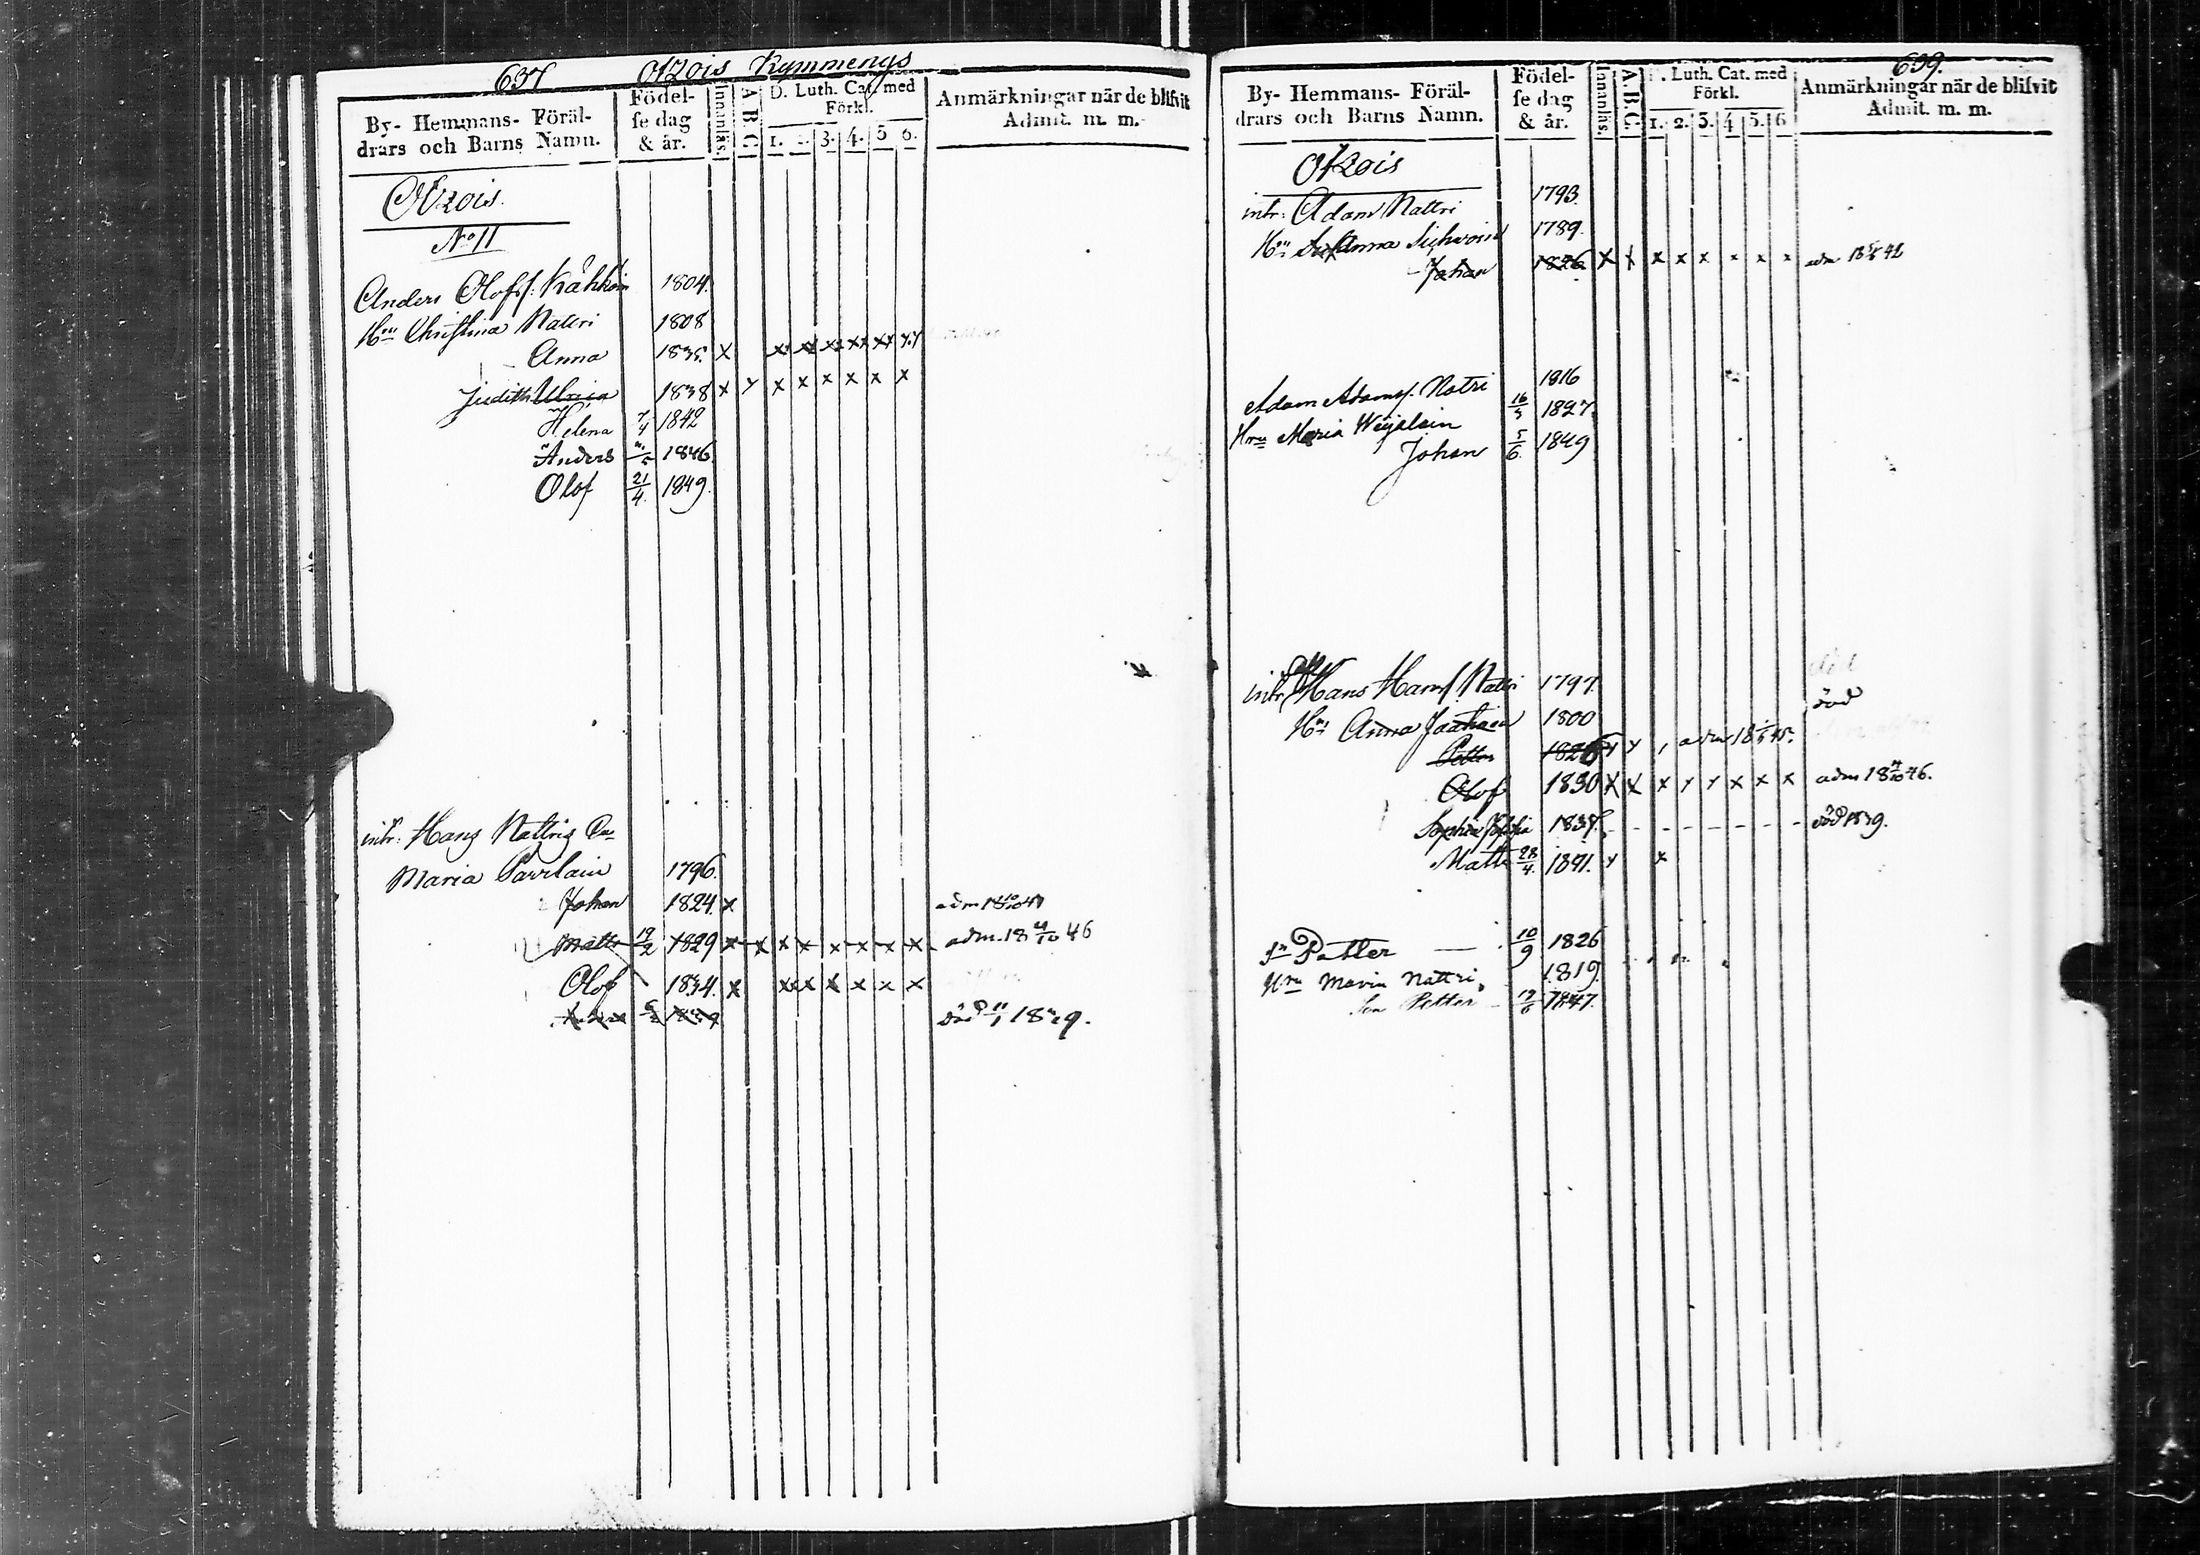 637
Otzois Kymmengs
By- Hemmans- Föräl-
drars och Barns Namn.
Födel-
se dag
& år.
Innanläs.
A B C
D. Luth. Cat. med
Förkl.
1. 2. 3. 4. 5 6.
Anmärkningar när de blifvit
Admit. m. m.
Otzois.
No 11
Anders Olofs. 1804.
Hru Christina Nattri 1808
Anna 1835. x x x x x x x
Judith Ulrica 1838 x x x x x x x x
Helena 7/4 1842
Anders 1846
Olof 21/4. 1849.
intr. Hans Nattris
Maria Pavilain 1796.
Johan 1824. x
Matts 19/2 1829 x x x x x x x x adm. 18 4/10 46
Olof 1834. x x x x x x x
död
639.
By- Hemmans- Föräl-
drars och Barns Namn.
Födel-
se dag
& år.
Innanläs.
A. B. C.
Luth. Cat. med
Förkl.
1. 2. 3. 4 5. 6
Anmärkningar när de blifvit
Admit. m. m.
Otzois
intr. Adam Nattri 1793.
Anna 1789.
Johan 1826 x x x x x x x x
Adam Adams. Natri 1816
Hru Maria 16/3 1827
Johan 5/6. 1849
intr. Hans Hans. Nattri 1797. död
Anna 1800
Petter 1826
Olof 1830 x x x x x x x x adm 18 4/10 46.
Sophia 1837. död 1839.
Matts 28/4. 1841. x x
Petter 10/9 1826
Hru Maria Nattri 1819.
Son Petter 1847.